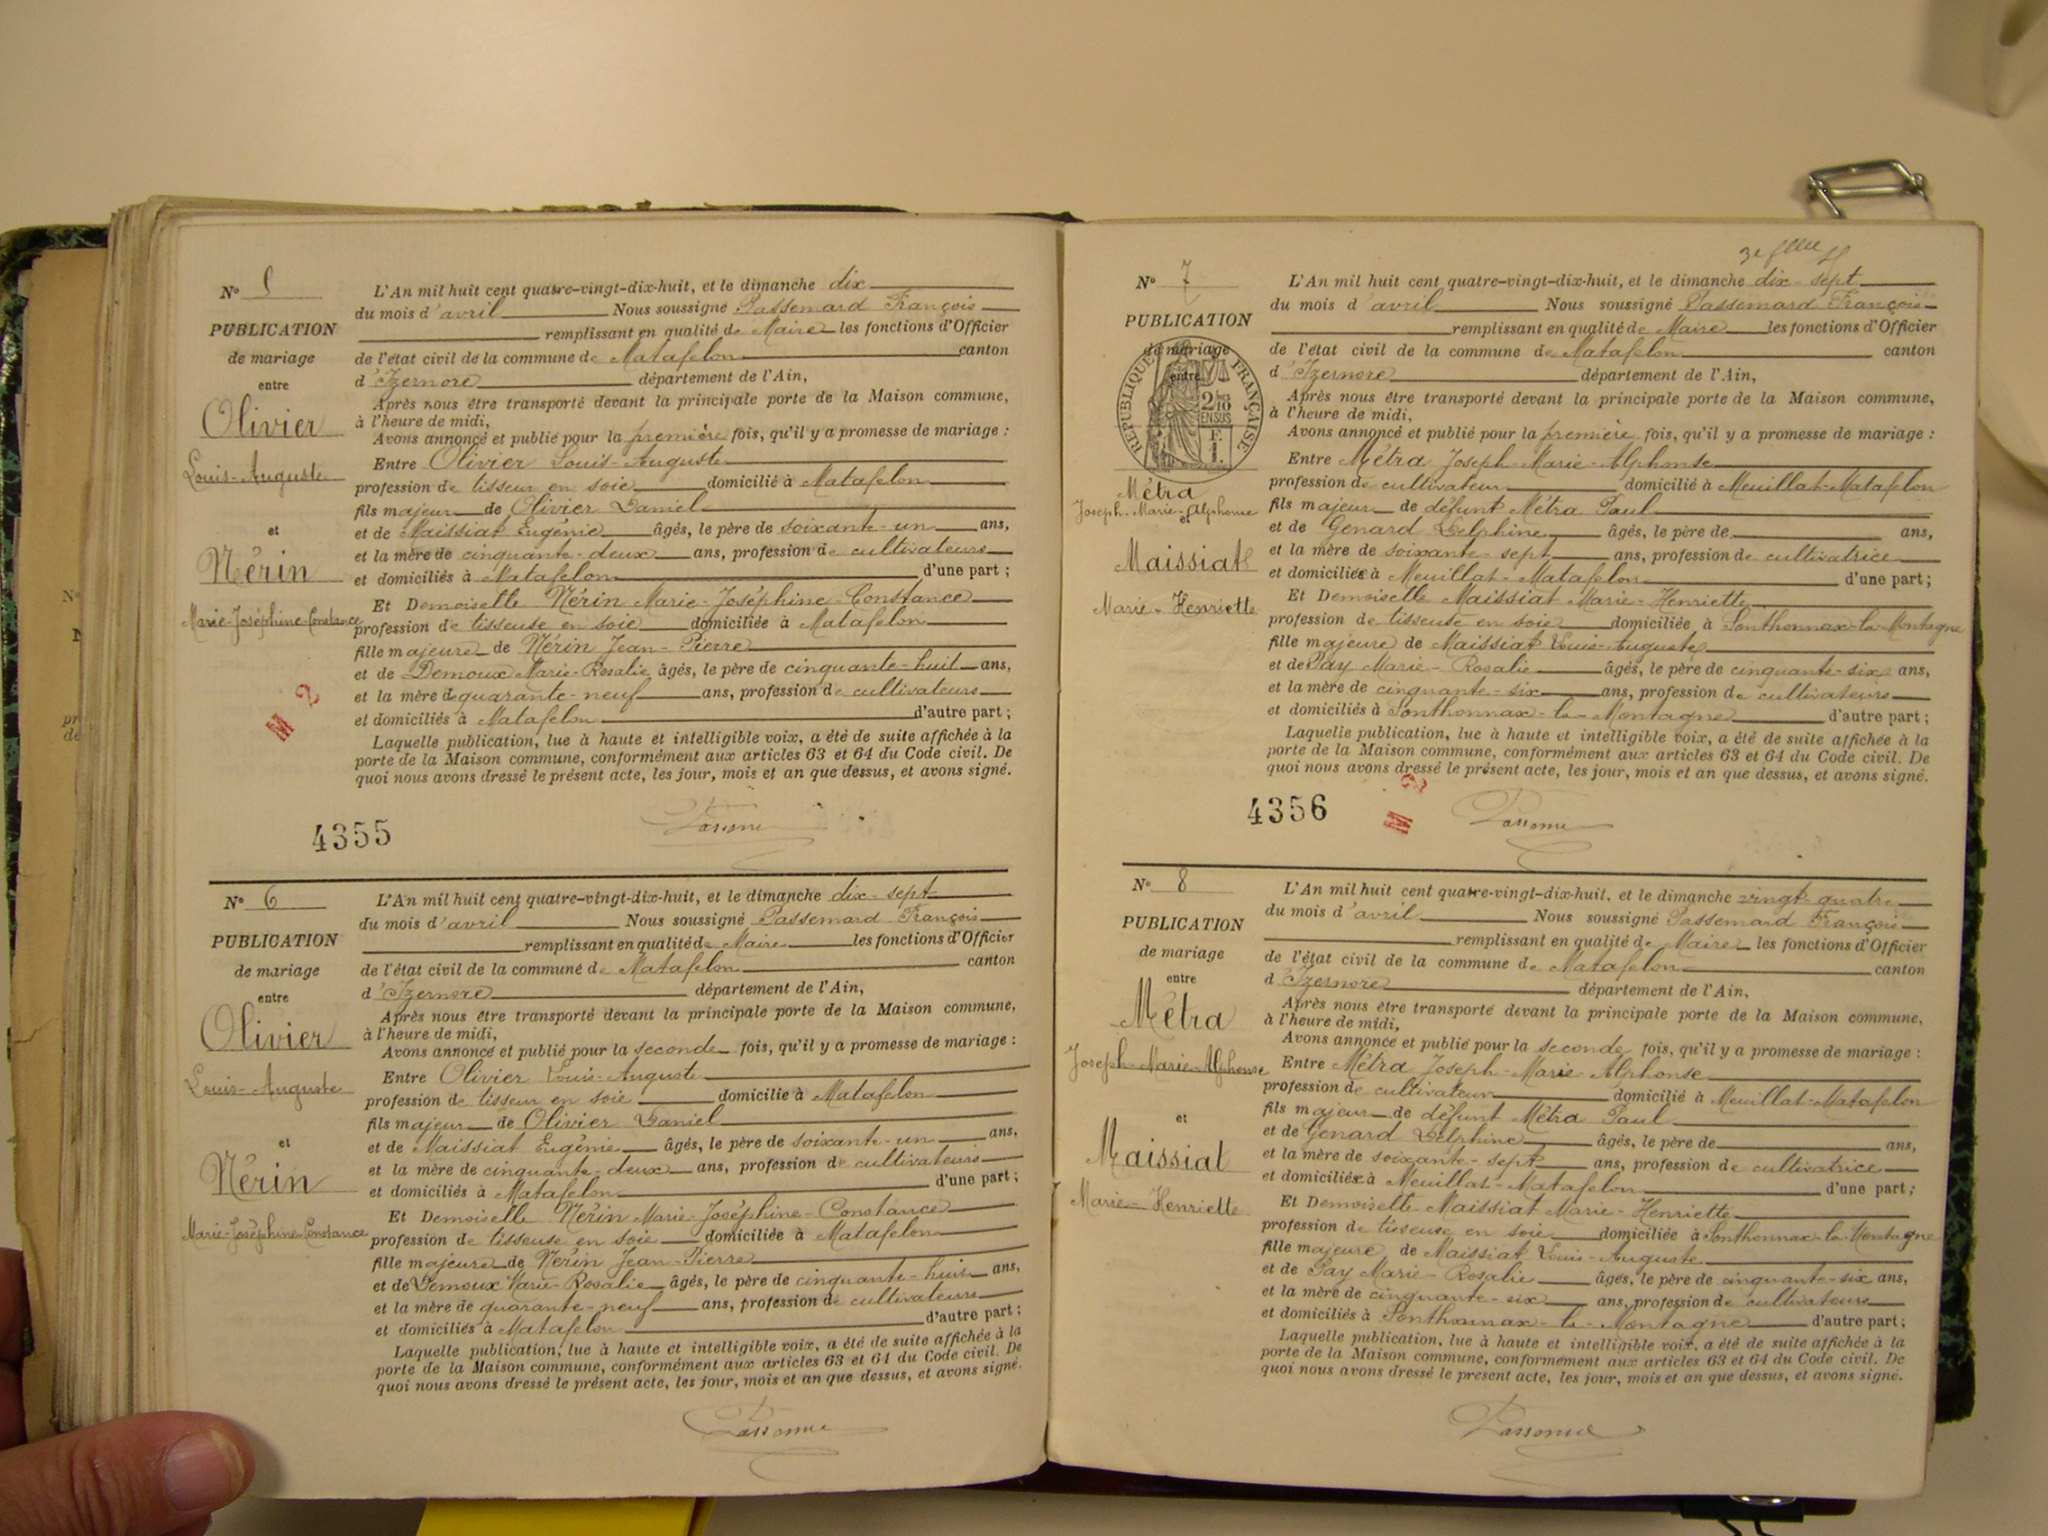 N° 5
PUBLICATION
de mariage
entre
Olivier
Louis-Auguste
et
Nérin
Marie-Joséphine-Constance
L'An mil huit cent quatre-vingt-dix-huit, et le dimanche dix
du mois d'avril Nous soussigné Passemard François
remplissant en qualité de Maire les fonctions d'Officier
de l'état civil de la commune de Matafelon canton
d'Izernore département de l'Ain,
Après nous être transporté devant la principale porte de la Maison commune,
à l'heure de midi,
Avons annoncé et publié pour la première fois, qu'il y a promesse de mariage :
Entre Olivier Louis-Auguste
profession de tisseur en soie domicilié à Matafelon
fils majeur de Olivier Daniel
et de Maissiat Eugénie âgés, le père de soixante-un ans,
et la mère de cinquante-deux ans, profession de cultivateurs
et domiciliés à Matafelon d'une part ;
Et Demoiselle Nérin Marie-Joséphine-Constance
profession de tisseuse en soie domiciliée à Matafelon
fille majeure de Nérin Jean-Pierre
et de Demoux Marie-Rosalie âgés, le père de cinquante-huit ans,
et la mère de quarante-neuf ans, profession de cultivateurs
et domiciliés à Matafelon d'autre part ;
Laquelle publication, lue à haute et intelligible voix, a été de suite affichée à la
porte de la Maison commune, conformément aux articles 63 et 64 du Code civil. De
quoi nous avons dressé le présent acte, les jour, mois et an que dessus, et avons signé.
M 2
4355
N° 6
PUBLICATION
de mariage
entre
Olivier
Louis-Auguste
et
Nérin
Marie-Joséphine-Constance
L'An mil huit cent quatre-vingt-dix-huit, et le dimanche dix-sept
du mois d'avril Nous soussigné Passemard François
remplissant en qualité de Maire les fonctions d'Officier
de l'état civil de la commune de Matafelon canton
d'Izernore département de l'Ain,
Après nous être transporté devant la principale porte de la Maison commune,
à l'heure de midi,
Avons annoncé et publié pour la seconde fois, qu'il y a promesse de mariage :
Entre Olivier Louis-Auguste
profession de tisseur en soie domicilié à Matafelon
fils majeur de Olivier Daniel
et de Maissiat Eugénie âgés, le père de soixante-un ans,
et la mère de cinquante-deux ans, profession de cultivateurs
et domiciliés à Matafelon d'une part ;
Et Demoiselle Nérin Marie-Joséphine-Constance
profession de tisseuse en soie domiciliée à Matafelon
fille majeure de Nérin Jean-Pierre
et de Demoux Marie-Rosalie âgés, le père de cinquante-huit ans,
et la mère de quarante-neuf ans, profession de cultivateurs
et domiciliés à Matafelon d'autre part ;
Laquelle publication, lue à haute et intelligible voix, a été de suite affichée à la
porte de la Maison commune, conformément aux articles 63 et 64 du Code civil. De
quoi nous avons dressé le présent acte, les jour, mois et an que dessus, et avons signé.
N° 7
PUBLICATION
de mariage
entre
RÉPUBLIQUE FRANÇAISE
2 10
EN SUS
Métra
Joseph-Marie-Alphonse
et
Maissiat
Marie-Henriette
L'An mil huit cent quatre-vingt-dix-huit, et le dimanche dix-sept
du mois d'avril Nous soussigné Passemard François
remplissant en qualité de Maire les fonctions d'Officier
de l'état civil de la commune de Matafelon canton
d'Izernore département de l'Ain,
Après nous être transporté devant la principale porte de la Maison commune,
à l'heure de midi,
Avons annoncé et publié pour la première fois, qu'il y a promesse de mariage :
Entre Métra Joseph-Marie-Alphonse
profession de cultivateur domicilié à Meuillat-Matafelon
fils majeur de défunt Métra Paul
et de Genard Delphine âgés, le père de ans,
et la mère de soixante-sept ans, profession de cultivatrice
et domiciliée à Meuillat-Matafelon d'une part ;
Et Demoiselle Maissiat Marie-Henriette
profession de tisseuse en soie domiciliée à Sonthonnax-la-Montagne
fille majeure de Maissiat Louis-Auguste
et de Pay Marie-Rosalie âgés, le père de cinquante-six ans,
et la mère de cinquante-six ans, profession de cultivateurs
et domiciliés à Sonthonnax-la-Montagne d'autre part ;
Laquelle publication, lue à haute et intelligible voix, a été de suite affichée à la
porte de la Maison commune, conformément aux articles 63 et 64 du Code civil. De
quoi nous avons dressé le présent acte, les jour, mois et an que dessus, et avons signé.
4356
M 2
N° 8
PUBLICATION
de mariage
entre
Métra
Joseph-Marie-Alphonse
et
Maissiat
Marie-Henriette
L'An mil huit cent quatre-vingt-dix-huit, et le dimanche vingt-quatre
du mois d'avril Nous soussigné Passemard François
remplissant en qualité de Maire les fonctions d'Officier
de l'état civil de la commune de Matafelon canton
d'Izernore département de l'Ain,
Après nous être transporté devant la principale porte de la Maison commune,
à l'heure de midi,
Avons annoncé et publié pour la seconde fois, qu'il y a promesse de mariage :
Entre Métra Joseph-Marie-Alphonse
profession de cultivateur domicilié à Meuillat-Matafelon
fils majeur de défunt Métra Paul
et de Genard Delphine âgés, le père de ans,
et la mère de soixante-sept ans, profession de cultivatrice
et domiciliée à Meuillat-Matafelon d'une part ;
Et Demoiselle Maissiat Marie-Henriette
profession de tisseuse en soie domiciliée à Sonthonnax-la-Montagne
fille majeure de Maissiat Louis-Auguste
et de Pay Marie-Rosalie âgés, le père de cinquante-six ans,
et la mère de cinquante-six ans, profession de cultivateurs
et domiciliés à Sonthonnax-la-Montagne d'autre part ;
Laquelle publication, lue à haute et intelligible voix, a été de suite affichée à la
porte de la Maison commune, conformément aux articles 63 et 64 du Code civil. De
quoi nous avons dressé le présent acte, les jour, mois et an que dessus, et avons signé.